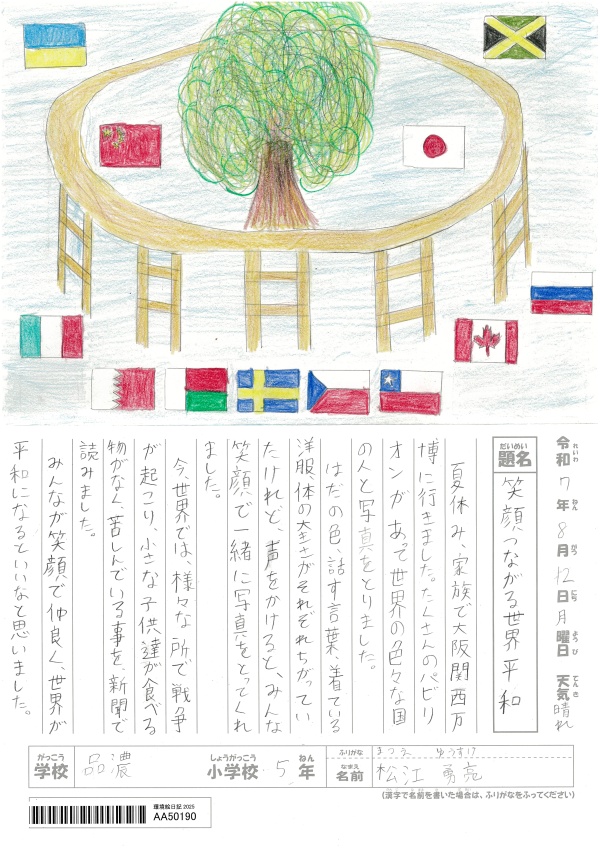 令和7年8月12日月曜日 天気晴れ
れいわ ねん がつ にち ようび てんき
だいめい
題名 笑顔つながる世界平和
夏休み、家族で大阪関西万
博に行きました。たくさんのパビリ
オンがあって世界の色々な国
の人と写真をとりました。
はだの色、話す言葉、着ている
洋服、体の大きさがそれぞれちがってい
たけれど、声をかけると、みんな
笑顔で一緒に写真をとってくれ
ました。
今、世界では、様々な所で戦争
が起こり、小さな子供達が食べる
物がなく、苦しんでいる事を、新聞で
読みました。
みんなが笑顔で仲良く、世界が
平和になるといいなと思いました。
がっこう しょうがっこう ねん
学校 品濃 小学校 5年
ふりがな まつえ ゆうすけ
なまえ
名前 松江 勇亮
(漢字で名前を書いた場合は、ふりがなをふってください)
環境絵日記 2025
AA50190